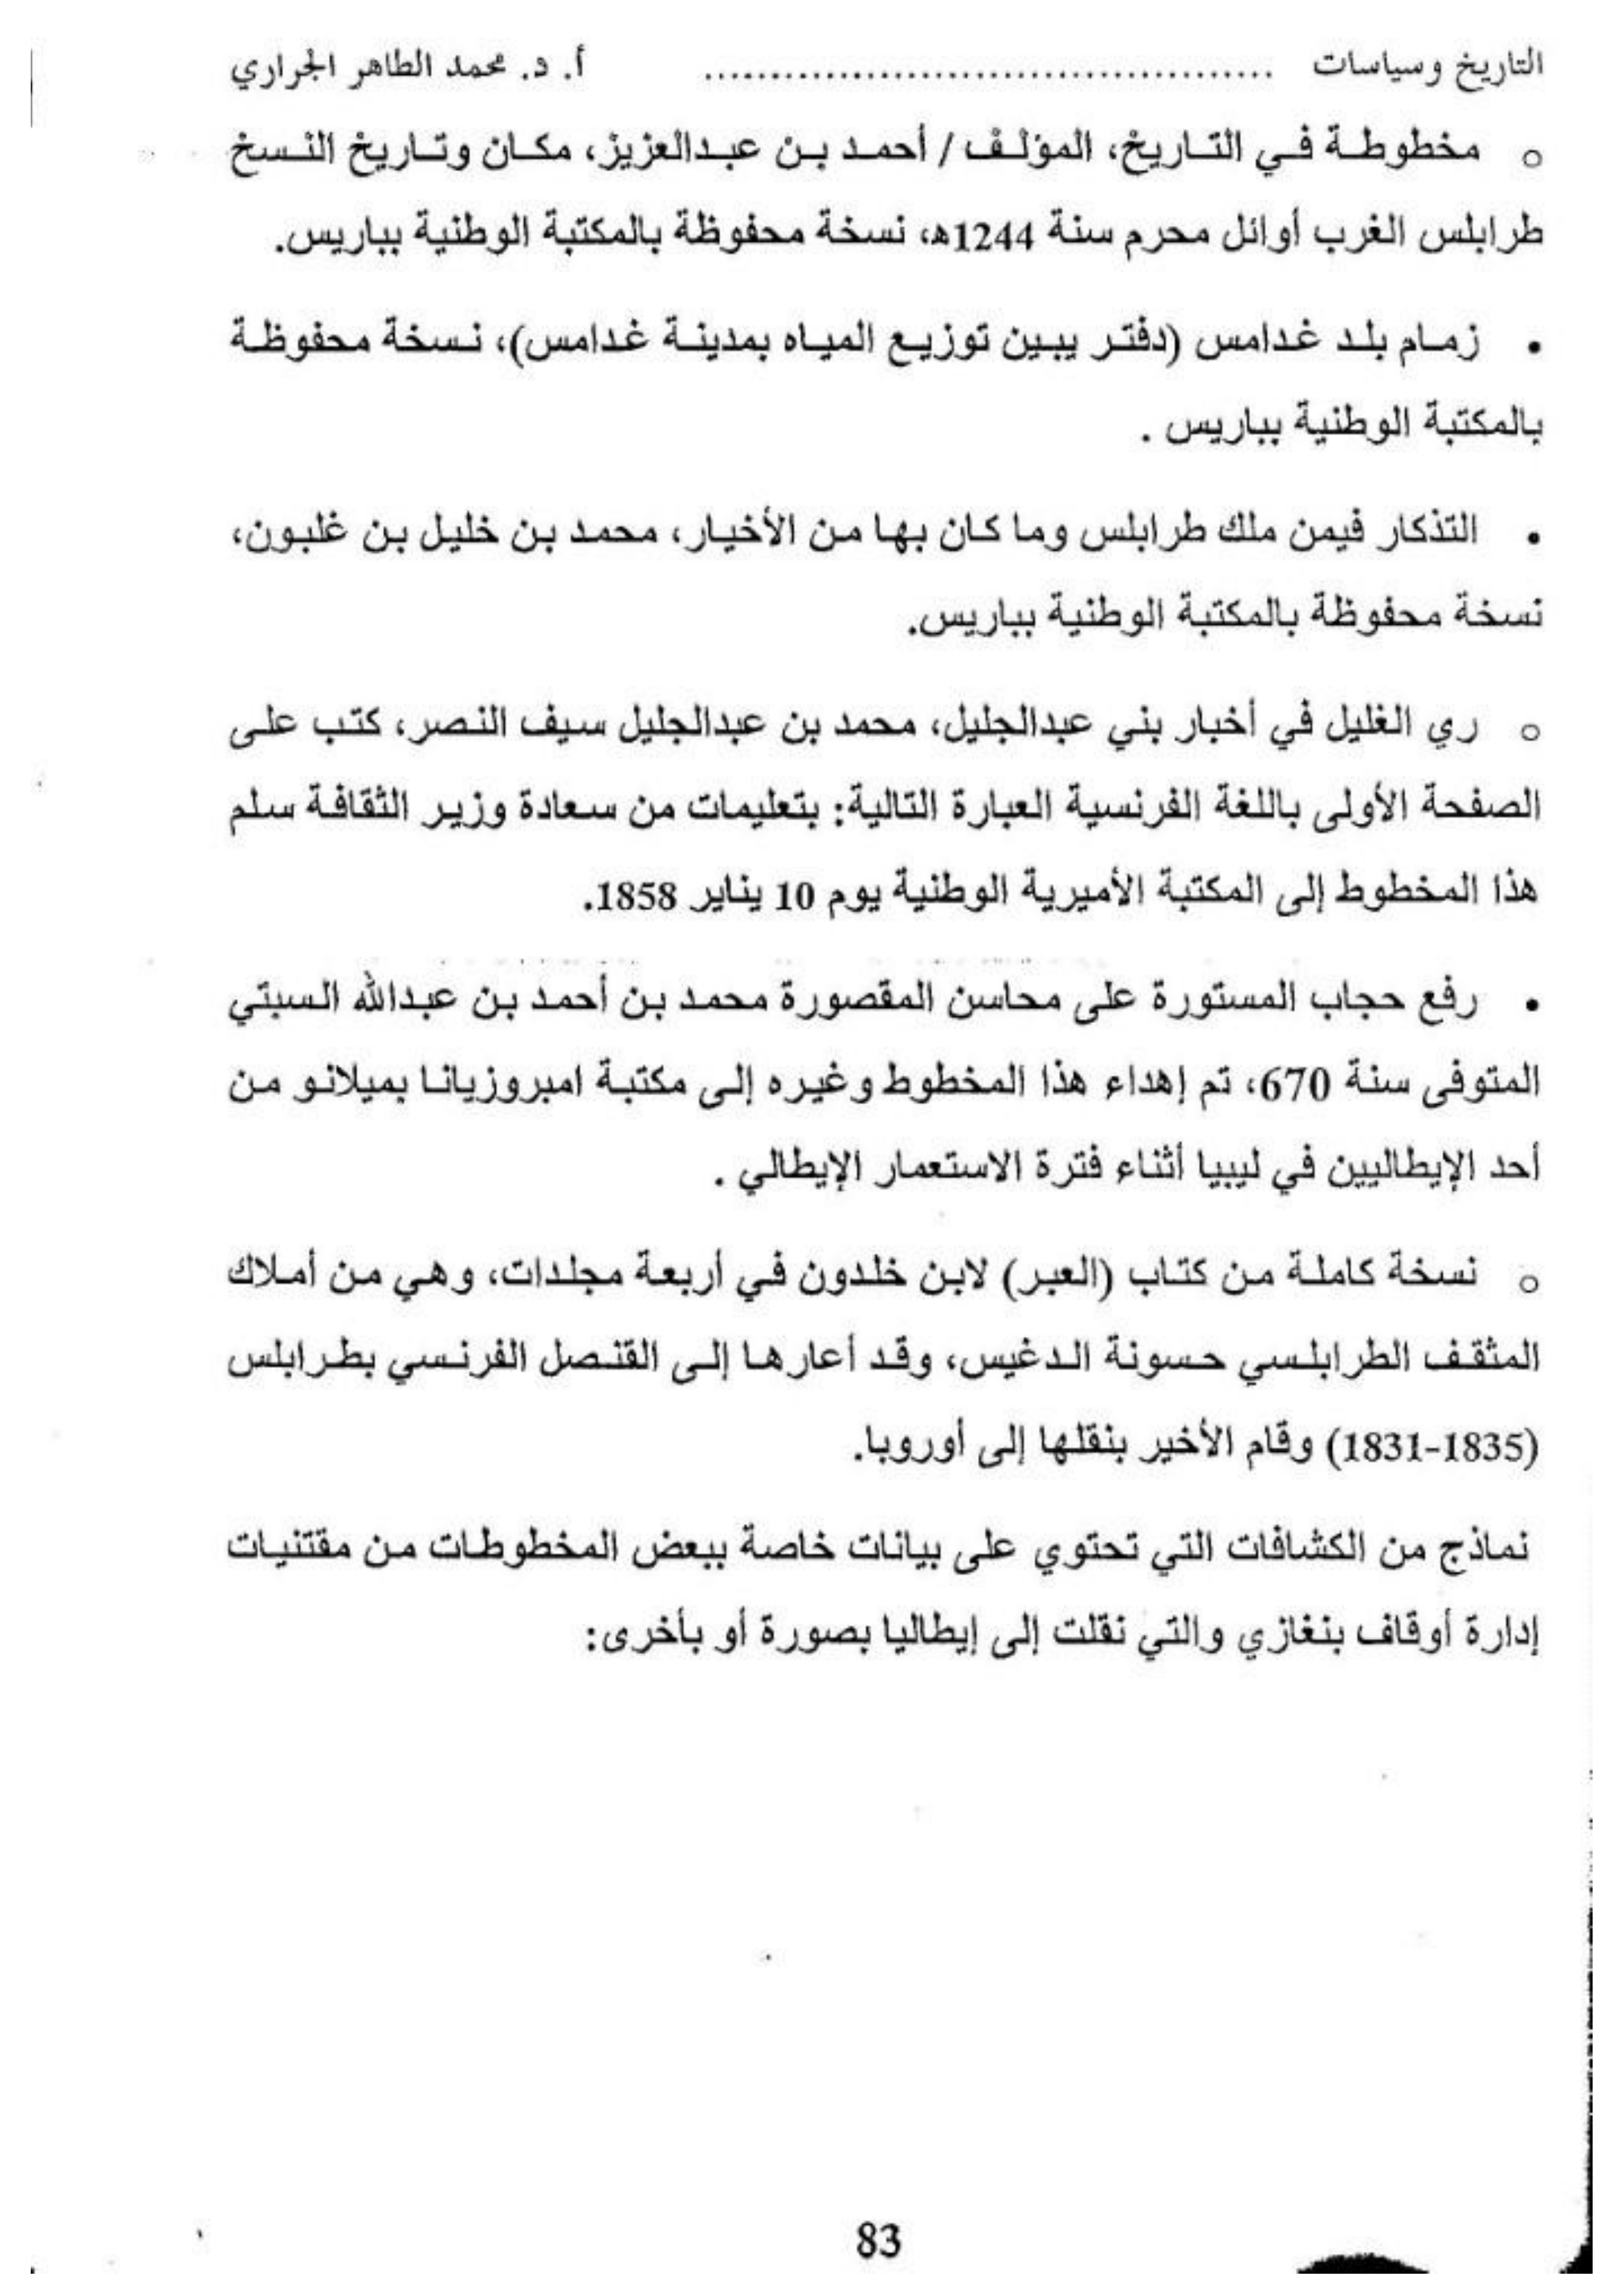 التاريخ وسياسات ........................................... أ. د. محمد الطاهر الجراري
○ مخطوطة في التاريخ، المؤلف / أحمد بن عبدالعزيز، مكان وتاريخ النسخ
طرابلس الغرب أوائل محرم سنة 1244ه، نسخة محفوظة بالمكتبة الوطنية بباريس.
• زمام بلد غدامس (دفتر يبين توزيع المياه بمدينة غدامس)، نسخة محفوظة
بالمكتبة الوطنية بباريس .
• التذكار فيمن ملك طرابلس وما كان بها من الأخيار، محمد بن خليل بن غلبون،
نسخة محفوظة بالمكتبة الوطنية بباريس.
○ ري الغليل في أخبار بني عبدالجليل، محمد بن عبدالجليل سيف النصر، كتب على
الصفحة الأولى باللغة الفرنسية العبارة التالية: بتعليمات من سعادة وزير الثقافة سلم
هذا المخطوط إلى المكتبة الأميرية الوطنية يوم 10 يناير 1858.
• رفع حجاب المستورة على محاسن المقصورة محمد بن أحمد بن عبدالله السبتي
المتوفى سنة 670، تم إهداء هذا المخطوط وغيره إلى مكتبة امبروزيانا بميلانو من
أحد الإيطاليين في ليبيا أثناء فترة الاستعمار الإيطالي .
○ نسخة كاملة من كتاب (العبر) لابن خلدون في أربعة مجلدات، وهي من أملاك
المثقف الطرابلسي حسونة الدغيس، وقد أعارها إلى القنصل الفرنسي بطرابلس
(1831-1835) وقام الأخير بنقلها إلى أوروبا.
نماذج من الكشافات التي تحتوي على بيانات خاصة ببعض المخطوطات من مقتنيات
إدارة أوقاف بنغازي والتي نقلت إلى إيطاليا بصورة أو بأخرى:
83